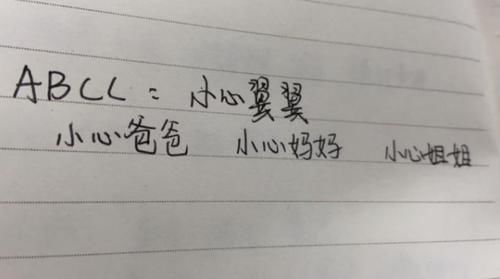 ABCC：小心翼翼
小心爸爸 小心妈妈 小心姐姐